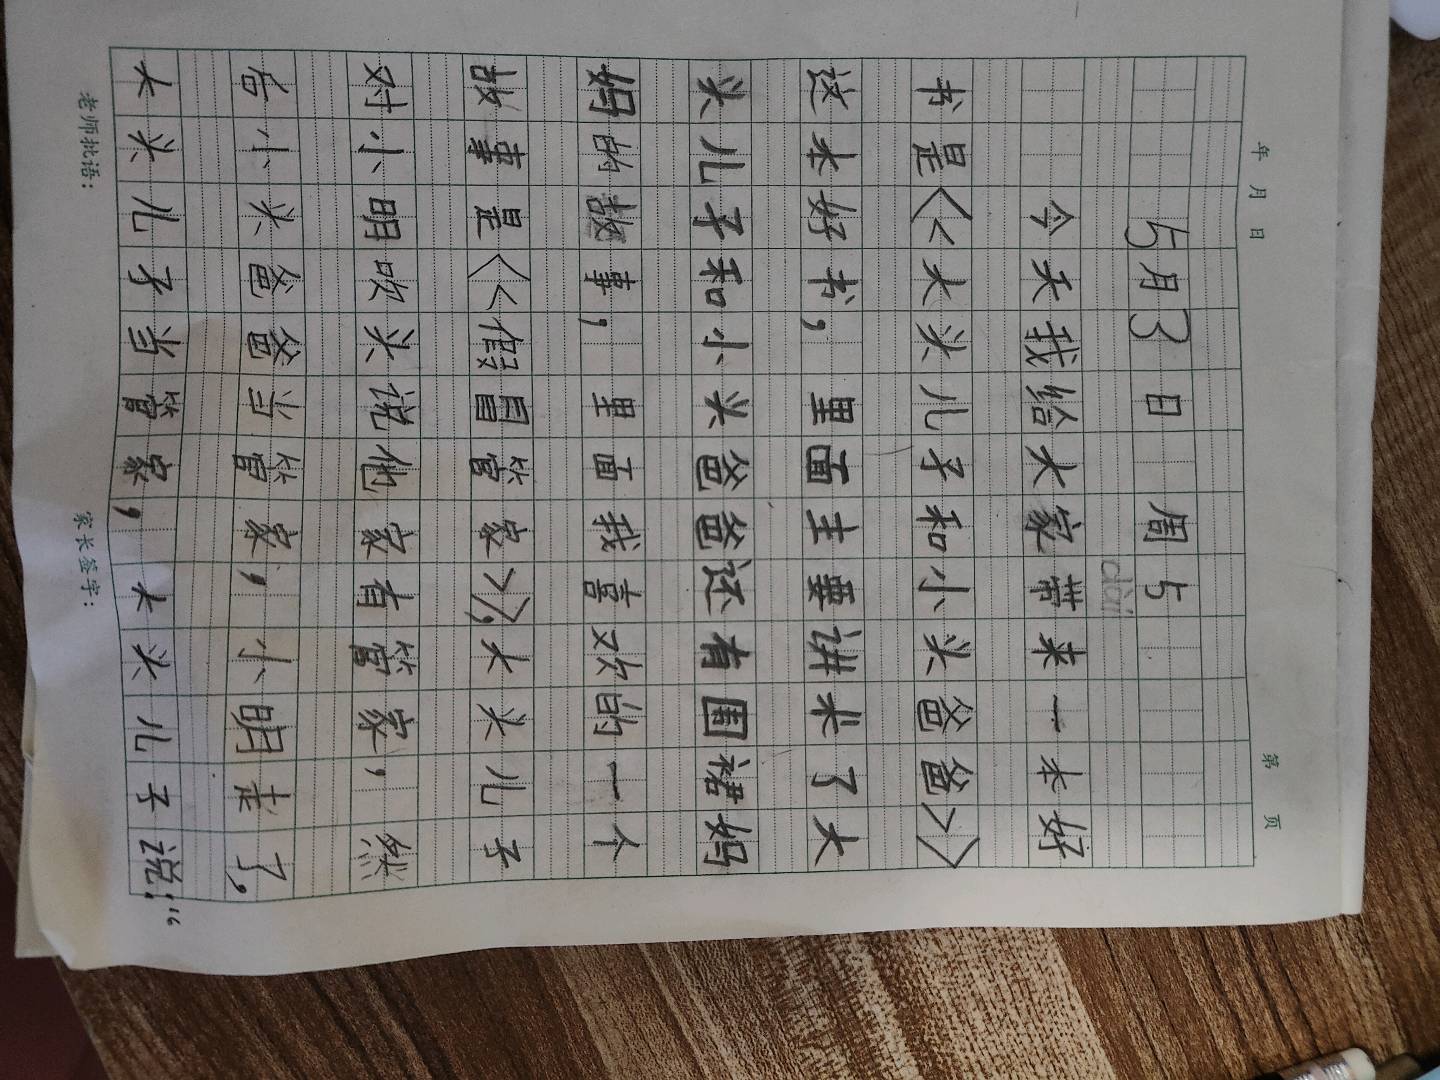 年 月 日 第 页
5月3日 周5
dài
今天我给大家带来一本好
书是《大头儿子和小头爸爸》
这本好书，里面主要讲米了大
头儿子和小头爸爸还有围裙妈
妈的故事，里面我喜欢的一个
故事是《假冒管家》，大头儿子
对小明吹头说他家有管家，然
后小头爸爸当管家，小明走了，
大头儿子当管家，大头儿子说：“
老师批语： 家长签字：